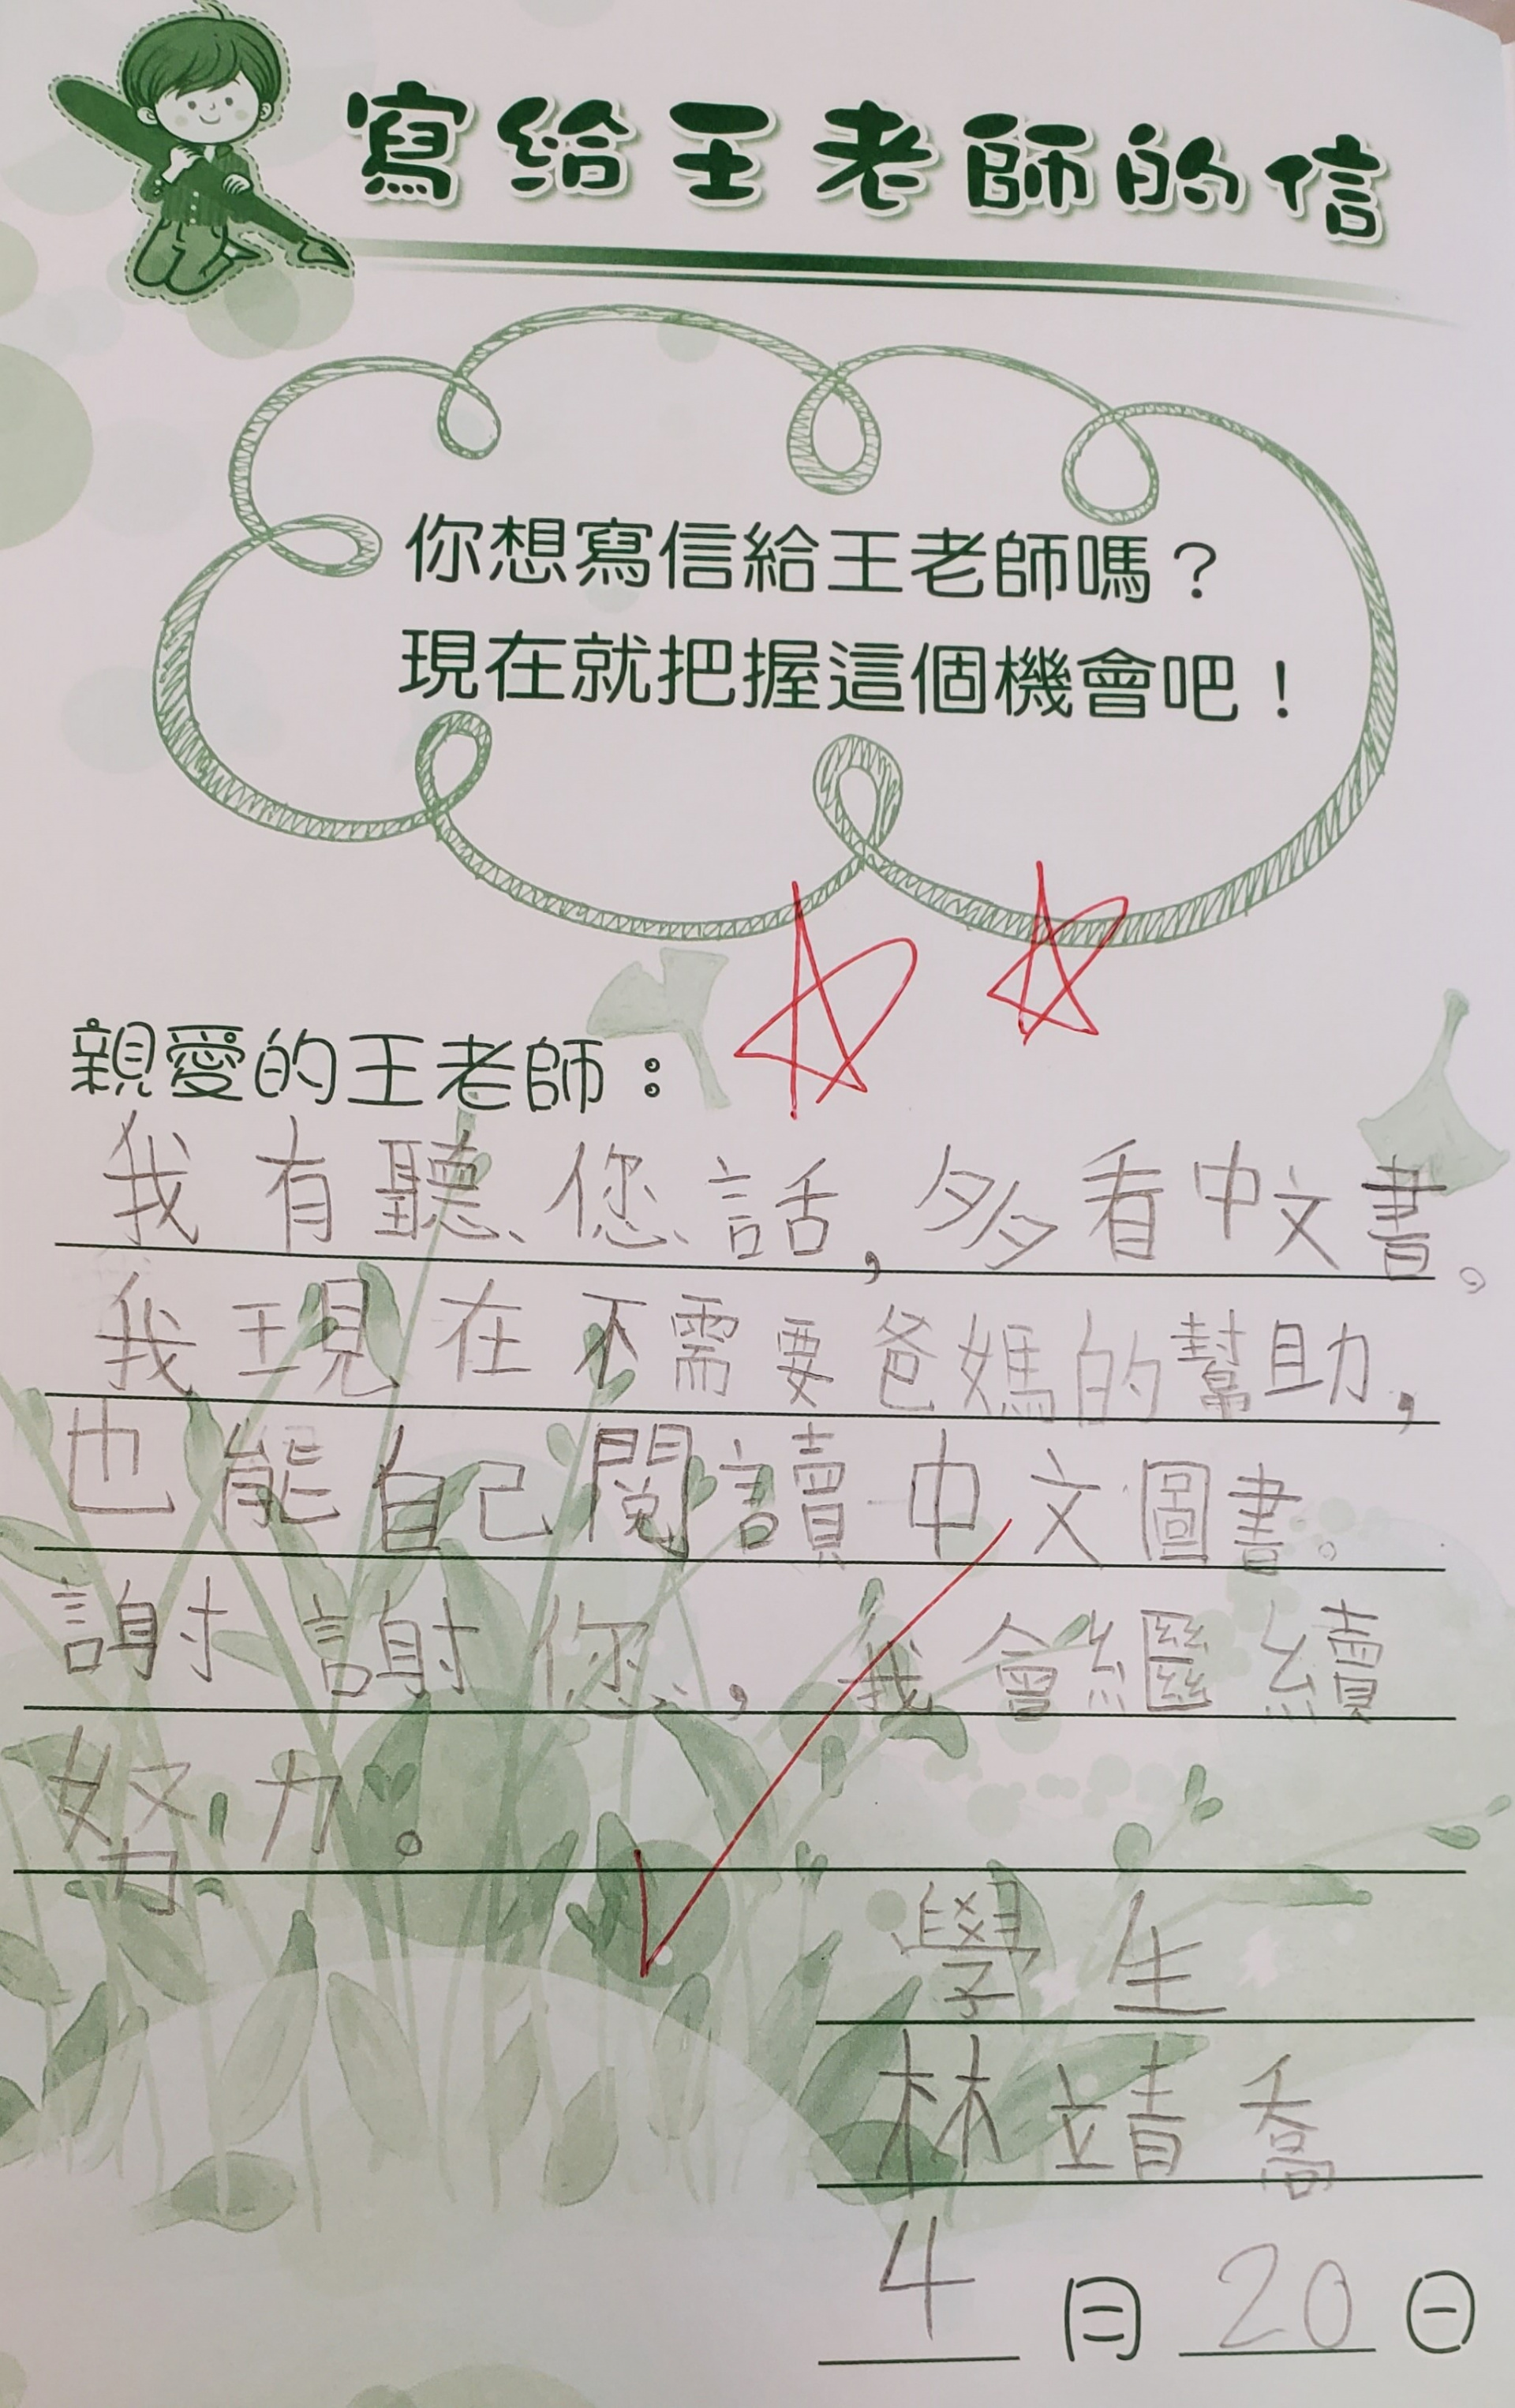 寫給王老師的信
你想寫信給王老師嗎？
現在就把握這個機會吧！
親愛的王老師：
我有聽您話，多看中文書。
我現在不需要爸媽的幫助，
也能自己閱讀中文圖書。
謝謝您，我會繼續
努力。
學生
林靖喬
4月20日